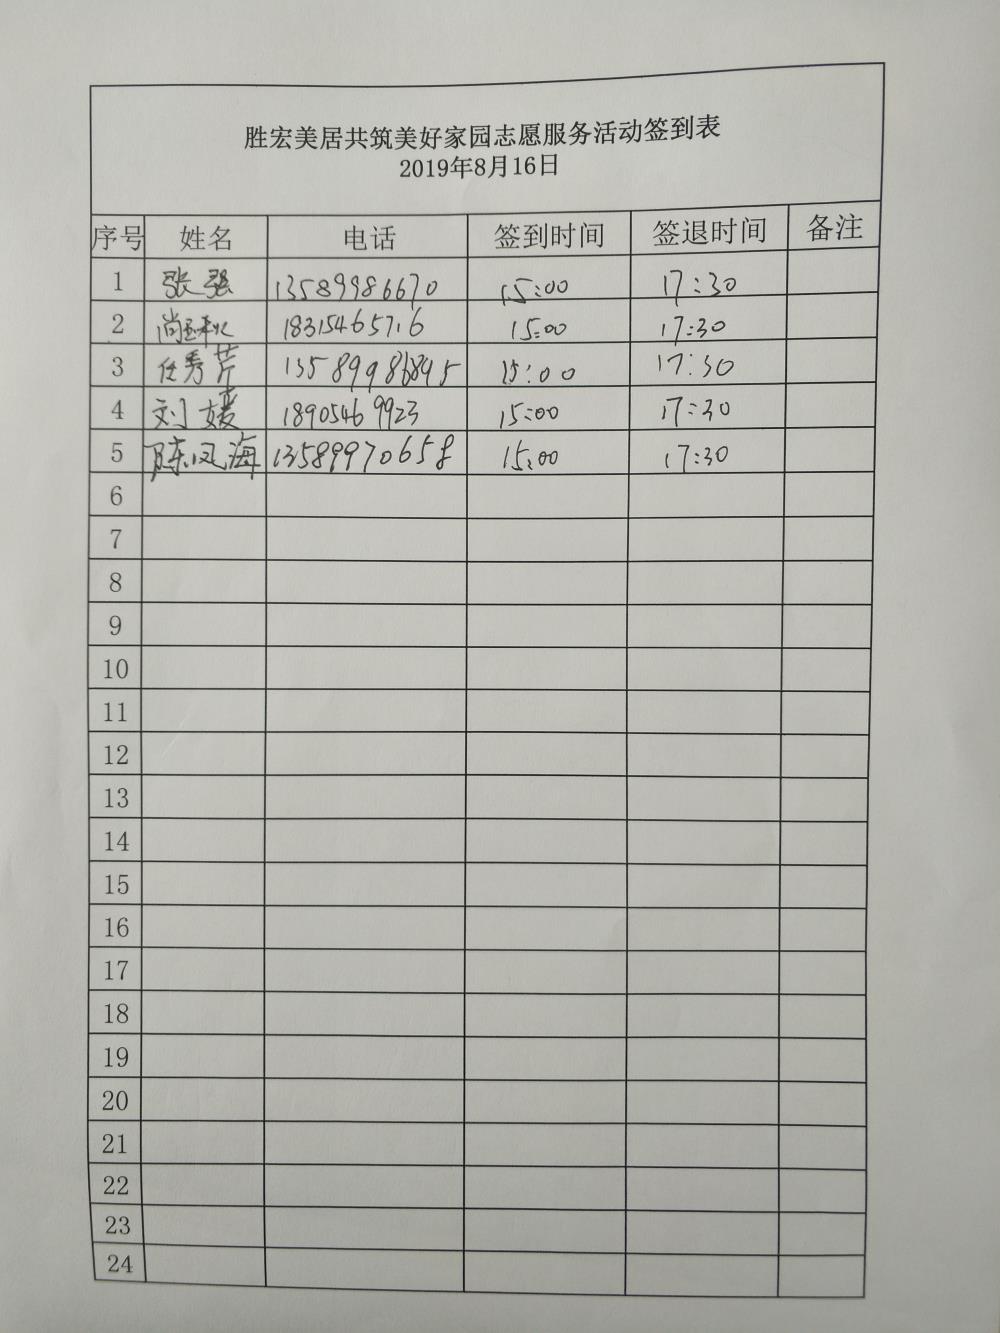 胜宏美居共筑美好家园志愿服务活动签到表
2019年8月16日
序号 姓名 电话 签到时间 签退时间 备注
1 张强 13589986670 15:00 17:30
2 18315465716 15:00 17:30
3 任秀芹 13589986895 15:00 17:30
4 刘媛 18905469923 15:00 17:30
5 陈凤海 13589970658 15:00 17:30
6
7
8
9
10
11
12
13
14
15
16
17
18
19
20
21
22
23
24